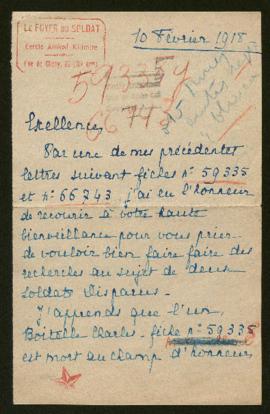 LE FOYER du SOLDAT
Cercle Amical Militaire
10 Février 1918
59335
66743
Excellence,
Par une de mes précédentes
lettres suivant fiches n° 59335
et n° 66743 j'ai eu l'honneur
de recourir à votre haute
bienveillance pour vous prier
de vouloir bien faire faire des
recherches au sujet de deux
soldats disparus.
J'apprends que l'un
Boitelle Charles. fiche n° 59335
est mort au champ d'honneur